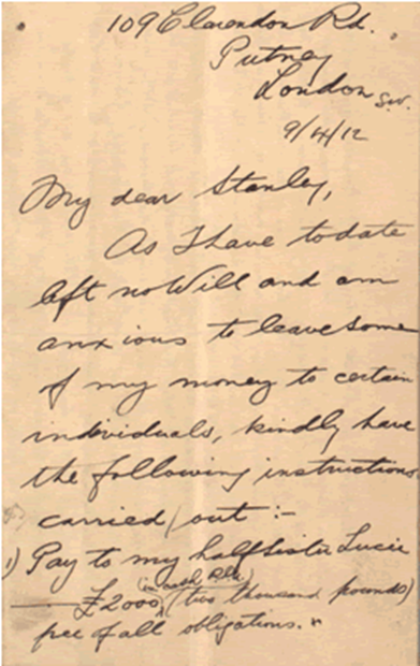 109 Clarendon Rd.
Putney
London S.W.
9/4/12
My dear Stanley,
As I have to date
left no Will and am
anxious to leave some
of my money to certain
individuals, kindly have
the following instructions
carried out :-
1) Pay to my half Sister Lucie
(in cash
£2000 (two thousand pounds)
free of all obligations.